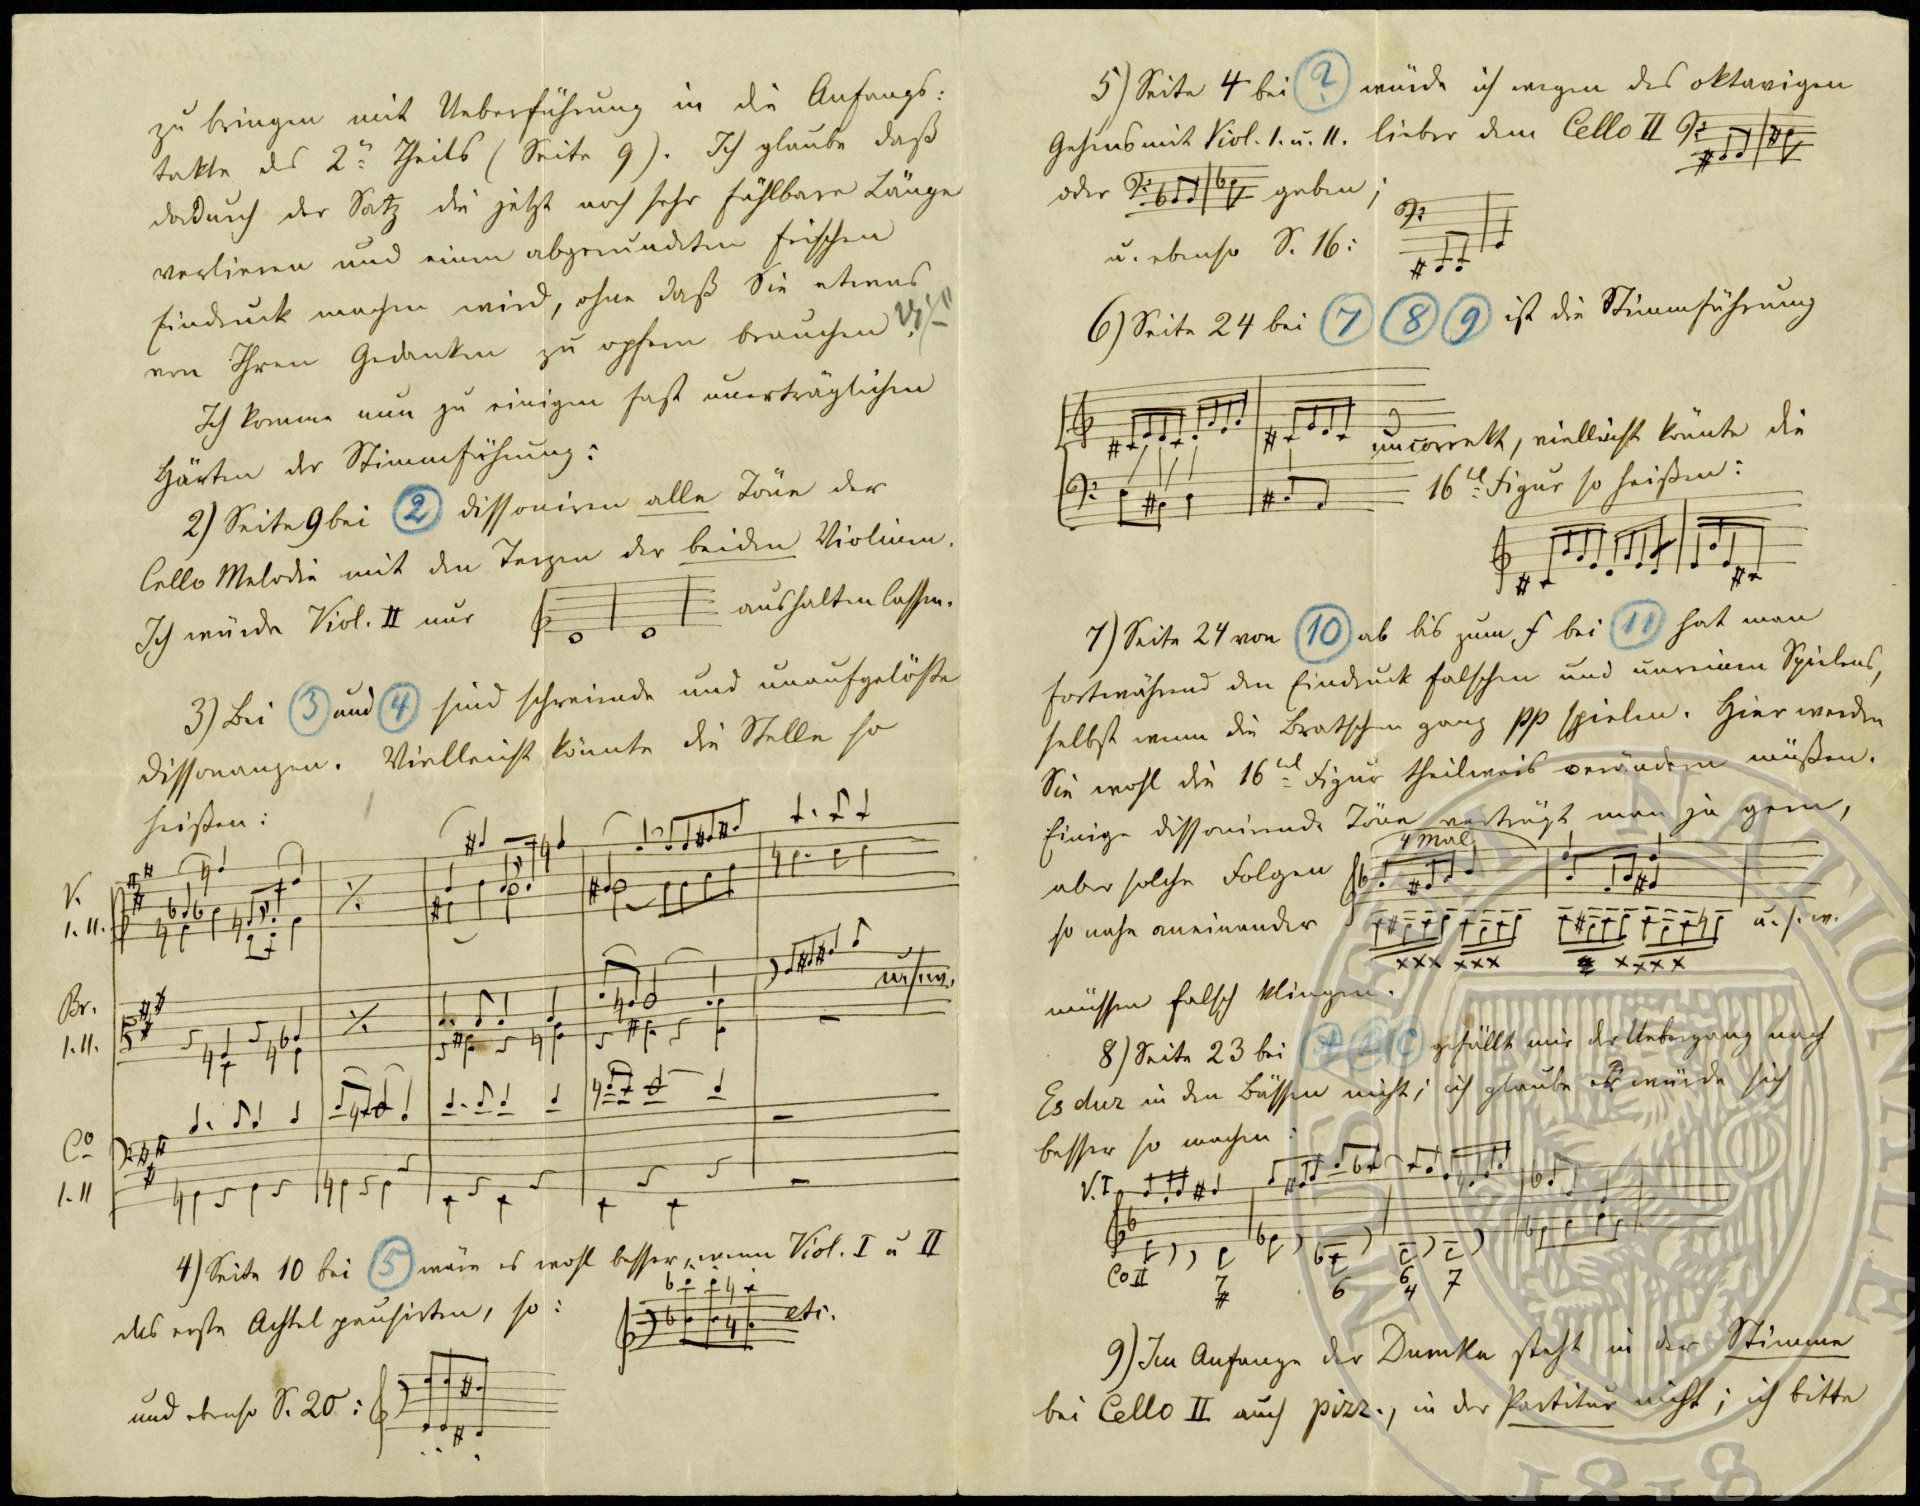 zu bringen mit Ueberführung in die Anfangs:
takte des 2n Theils (Seite 9). Ich glaube daß
dadurch der Satz die jetzt noch sehr fühlbare Länge
verlieren und einen abgerundeten frischen
Eindruck machen wird, ohne daß Sie etwas
von Ihren Gedanken zu opfern brauchen.
Ich komme nun zu einigen fast unerträglichen
Härten der Stimmführung:
2) Seite 9 bei 2 dissoniren alle Töne der
Cello Melodie mit den Terzen der beiden Violinen.
Ich würde Viol. II nur aushalten lassen.
3) Bei 3 und 4 sind schreiende und unaufgelöste
Dissonanzen. Vielleicht könnte die Stelle so
heißen:
V.
I. II.
Br.
I. II.
u.s.w.
Co
I. II
4) Seite 10 bei 5 wäre es wohl besser, wenn Viol. I u II
das erste Achtel pausirten, so: etc.
und ebenso S. 20:
5) Seite 4 bei ? würde ich wegen des oktavigen
Gehens mit Viol. I. u. II. lieber dem Cello II
oder geben;
u. ebenso S. 16:
6) Seite 24 bei 7 8 9 ist die Stimmführung
uncorrekt, vielleicht könnte die
16tel Figur so heißen:
7) Seite 24 von 10 ab bis zum f bei 11 hat man
fortwährend den Eindruck falschen und unreinen Spielens,
selbst wenn die Bratschen ganz pp spielen. Hier werden
Sie wohl die 16tel Figur theilweis verändern müßen.
Einige dissonirende Töne verträgt man ja gern,
4 mal
aber solche Folgen
so nahe aneinander u.s.w.
müssen falsch klingen.
8) Seite 23 bei gefällt mir der Uebergang nach
Es dur in den Bässen nicht; ich glaube es würde sich
besser so machen:
V. I
Co II
7 6 6 7
4
9) Im Anfange der Dumka steht in der Stimme
bei Cello II auch pizz., in der Partitur nicht; ich bitte
MUSEUM NATIONALE
1818